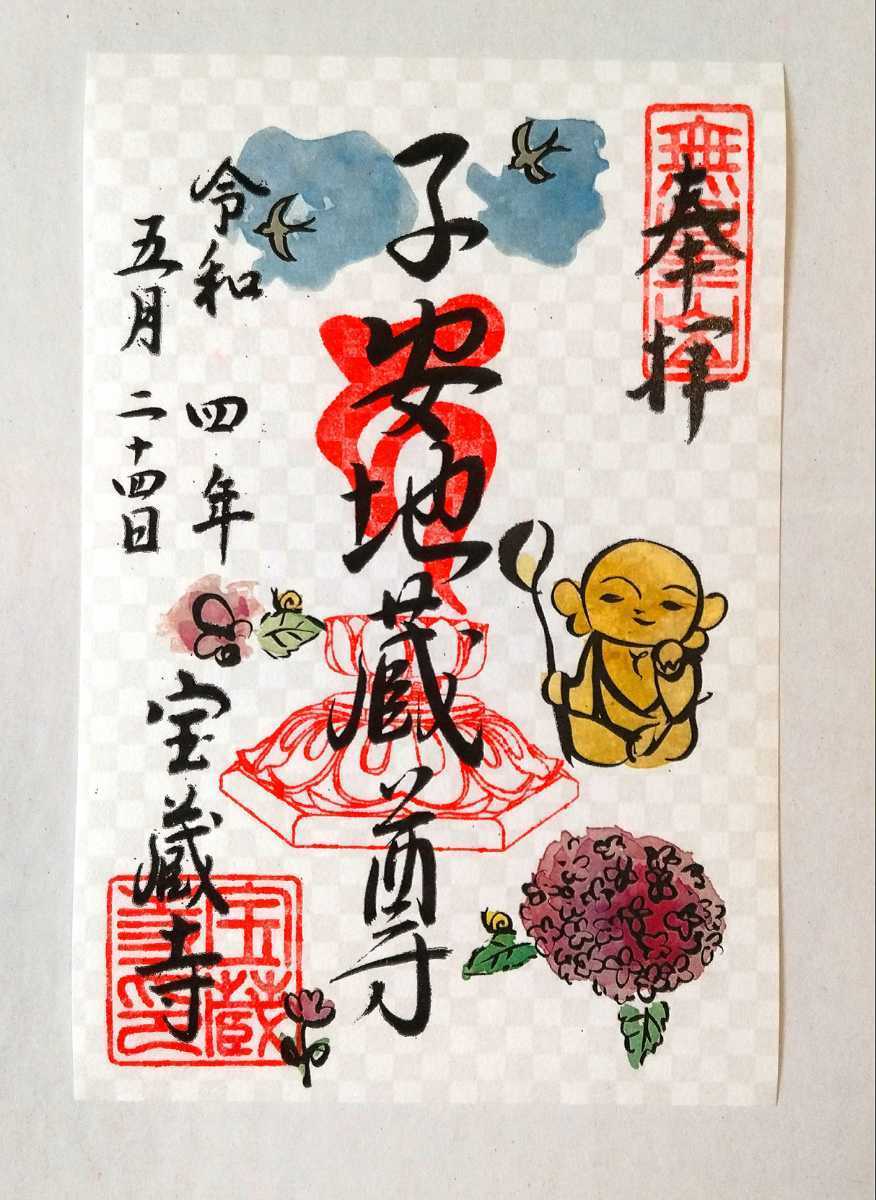 奉拝
子安地蔵尊
令和四年
五月二十四日
宝蔵寺
宝蔵
寺印